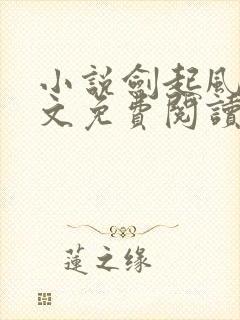 小說劍起風
文免費閱讀
蓮之缘